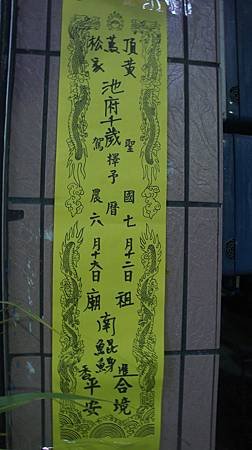 頂黃
蕉
松家
池府千歲
聖
駕
擇予
國
曆
農
七月十二日
六月十九日
祖
廟
南鯤鯓
進
香
合境
平安